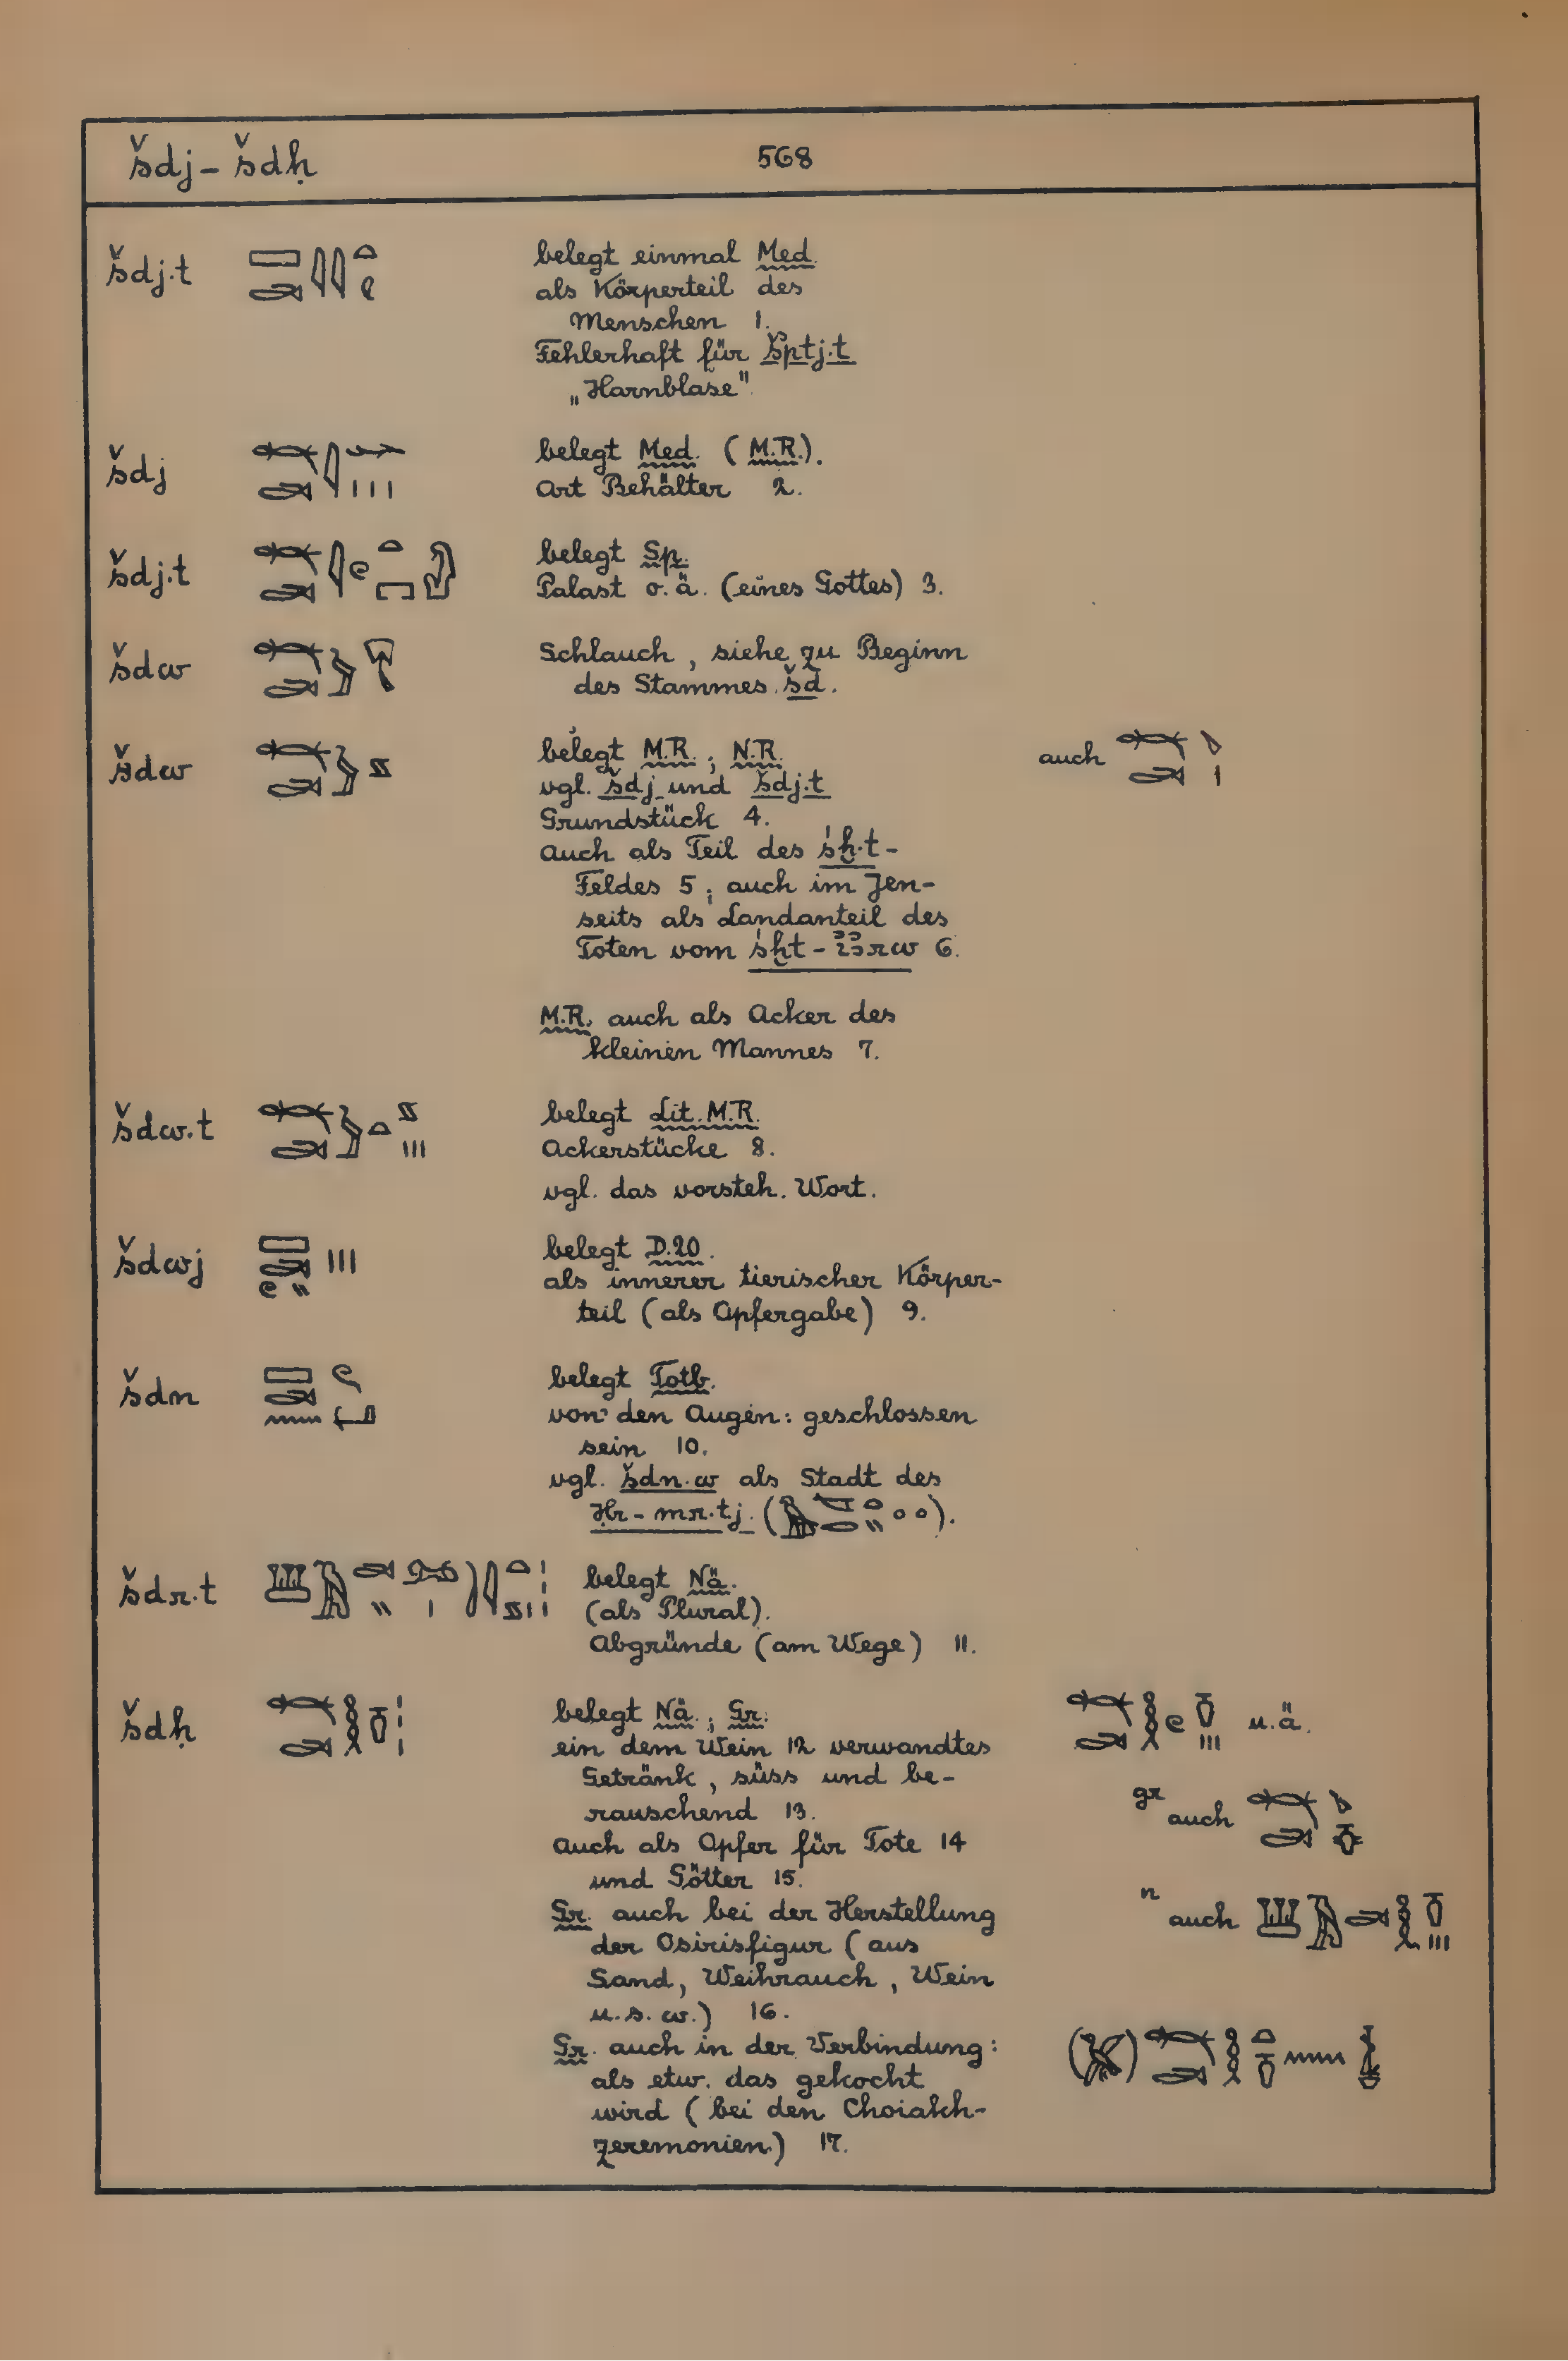 šdj – šdḥ 568
šdj.t belegt einmal Med.
als Körperteil des
Menschen 1.
Fehlerhaft für šptj.t
„Harnblase".
šdj belegt Med. (M.R.).
Art Behälter 2.
šdj.t belegt Sp.
Palast o.ä. (eines Gottes) 3.
šdw Schlauch, siehe zu Beginn
des Stammes šd.
šdw belegt M.R.; N.R. auch
vgl. šdj und šdj.t
Grundstück 4.
Auch als Teil des śḫ.t-
Feldes 5; auch im Jen-
seits als Landanteil des
Toten vom śḫt-i͗ꜣrw 6.
M.R. auch als Acker des
kleinen Mannes 7.
šdw.t belegt Lit. M.R.
Ackerstücke 8.
vgl. das vorsteh. Wort.
šdwj belegt D.20.
als innerer tierischer Körper-
teil (als Opfergabe) 9.
šdn belegt Totb.
von den Augen: geschlossen
sein 10.
vgl. šdn.w als Stadt des
Ḥr-mr.tj ( ).
šdr.t belegt Nä.
(als Plural).
Abgründe (am Wege) 11.
šdḥ belegt Nä.; Gr. u.ä.
ein dem Wein 12 verwandtes
Getränk, süss und be-
rauschend 13. gr auch
Auch als Opfer für Tote 14
und Götter 15.
Gr. auch bei der Herstellung n auch
der Osirisfigur (aus
Sand, Weihrauch, Wein
u.s.w.) 16.
Gr. auch in der Verbindung:
als etw. das gekocht
wird (bei den Choiakh-
zeremonien) 17.